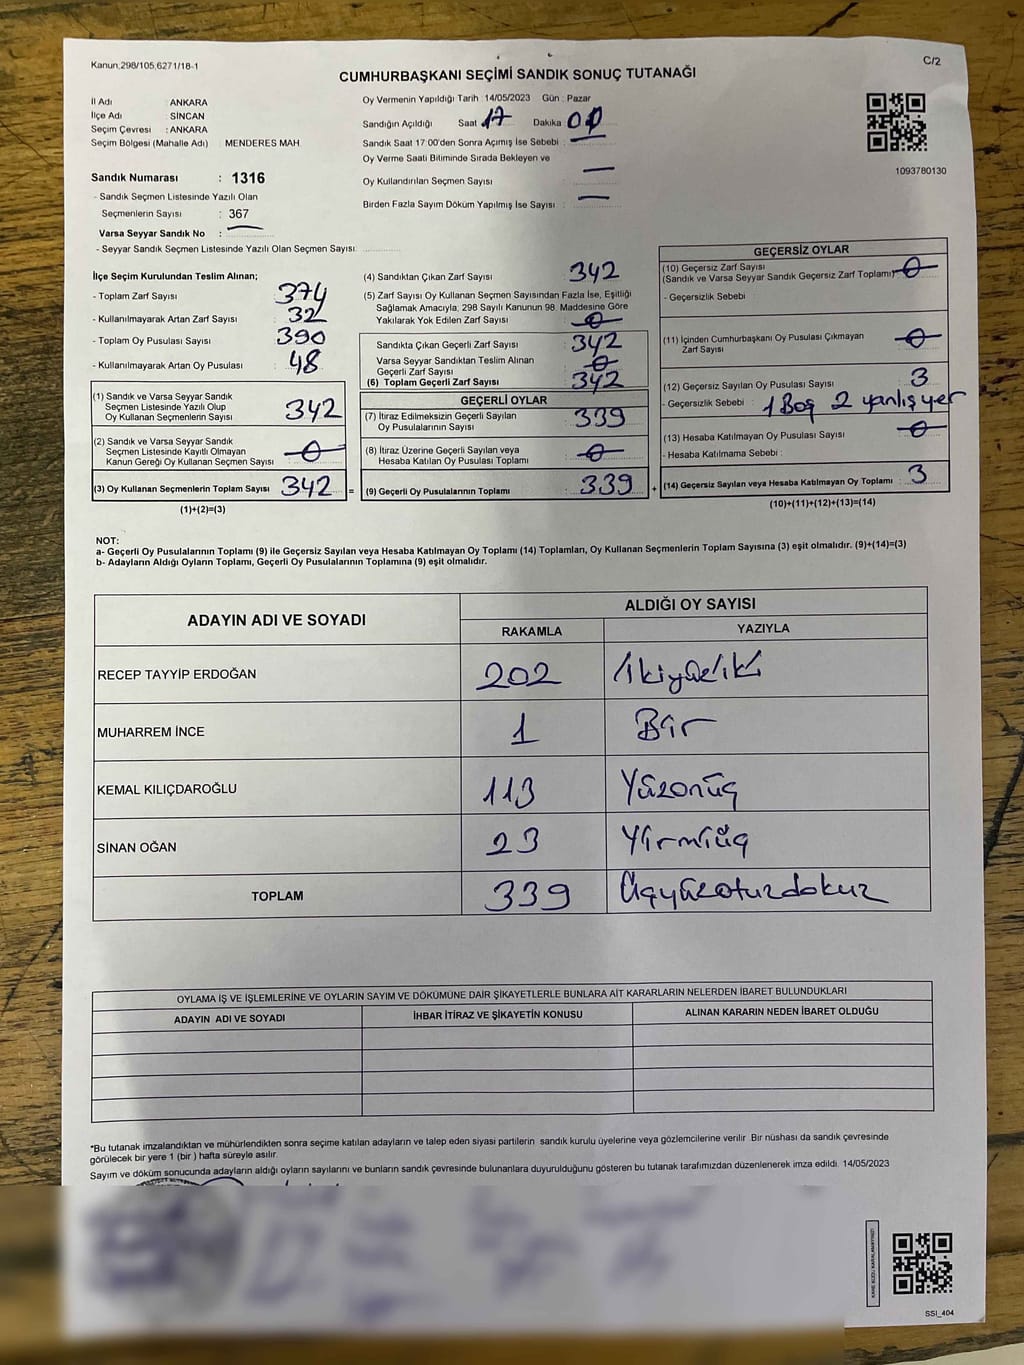 Kanun,298/105,6271/18-1
C/2
CUMHURBAŞKANI SEÇİMİ SANDIK SONUÇ TUTANAĞI
İl Adı : ANKARA
İlçe Adı : SİNCAN
Seçim Çevresi : ANKARA
Seçim Bölgesi (Mahalle Adı) : MENDERES MAH.
Oy Vermenin Yapıldığı Tarih 14/05/2023 Gün : Pazar
Sandığın Açıldığı Saat 17 Dakika 00
Sandık Saat 17:00'den Sonra Açımış İse Sebebi :
Oy Verme Saati Bitiminde Sırada Bekleyen ve
Oy Kullandırılan Seçmen Sayısı : —
Birden Fazla Sayım Döküm Yapılmış İse Sayısı : —
1093780130
Sandık Numarası : 1316
- Sandık Seçmen Listesinde Yazılı Olan
Seçmenlerin Sayısı : 367
Varsa Seyyar Sandık No : —
- Seyyar Sandık Seçmen Listesinde Yazılı Olan Seçmen Sayısı:
İlçe Seçim Kurulundan Teslim Alınan;
- Toplam Zarf Sayısı : 374
- Kullanılmayarak Artan Zarf Sayısı : 32
- Toplam Oy Pusulası Sayısı : 390
- Kullanılmayarak Artan Oy Pusulası : 48
(1) Sandık ve Varsa Seyyar Sandık
Seçmen Listesinde Yazılı Olup
Oy Kullanan Seçmenlerin Sayısı : 342
(2) Sandık ve Varsa Seyyar Sandık
Seçmen Listesinde Kayıtlı Olmayan
Kanun Gereği Oy Kullanan Seçmen Sayısı : 0
(3) Oy Kullanan Seçmenlerin Toplam Sayısı : 342 =
(1)+(2)=(3)
(4) Sandıktan Çıkan Zarf Sayısı : 342
(5) Zarf Sayısı Oy Kullanan Seçmen Sayısından Fazla İse, Eşitliği
Sağlamak Amacıyla; 298 Sayılı Kanunun 98. Maddesine Göre
Yakılarak Yok Edilen Zarf Sayısı : 0
Sandıkta Çıkan Geçerli Zarf Sayısı : 342
Varsa Seyyar Sandıktan Teslim Alınan
Geçerli Zarf Sayısı : 0
(6) Toplam Geçerli Zarf Sayısı : 342
GEÇERLİ OYLAR
(7) İtiraz Edilmeksizin Geçerli Sayılan
Oy Pusulalarının Sayısı : 339
(8) İtiraz Üzerine Geçerli Sayılan veya
Hesaba Katılan Oy Pusulası Toplamı : 0
(9) Geçerli Oy Pusulalarının Toplamı : 339 +
GEÇERSİZ OYLAR
(10) Geçersiz Zarf Sayısı
(Sandık ve Varsa Seyyar Sandık Geçersiz Zarf Toplamı) : 0
- Geçersizlik Sebebi
(11) İçinden Cumhurbaşkanı Oy Pusulası Çıkmayan
Zarf Sayısı : 0
(12) Geçersiz Sayılan Oy Pusulası Sayısı : 3
- Geçersizlik Sebebi : 1 Boş 2 yanlış yer
(13) Hesaba Katılmayan Oy Pusulası Sayısı : 0
- Hesaba Katılmama Sebebi :
(14) Geçersiz Sayılan veya Hesaba Katılmayan Oy Toplamı : 3
(10)+(11)+(12)+(13)=(14)
NOT:
a- Geçerli Oy Pusulalarının Toplamı (9) ile Geçersiz Sayılan veya Hesaba Katılmayan Oy Toplamı (14) Toplamları, Oy Kullanan Seçmenlerin Toplam Sayısına (3) eşit olmalıdır. (9)+(14)=(3)
b- Adayların Aldığı Oyların Toplamı, Geçerli Oy Pusulalarının Toplamına (9) eşit olmalıdır.
ADAYIN ADI VE SOYADI
ALDIĞI OY SAYISI
RAKAMLA YAZIYLA
RECEP TAYYİP ERDOĞAN 202 İkiyüzİki
MUHARREM İNCE 1 Bir
KEMAL KILIÇDAROĞLU 113 Yüzonüç
SİNAN OĞAN 23 Yirmiüç
TOPLAM 339 Üçyüzotuzdokuz
OYLAMA İŞ VE İŞLEMLERİNE VE OYLARIN SAYIM VE DÖKÜMÜNE DAİR ŞİKAYETLERLE BUNLARA AİT KARARLARIN NELERDEN İBARET BULUNDUKLARI
ADAYIN ADI VE SOYADI İHBAR İTİRAZ VE ŞİKAYETİN KONUSU ALINAN KARARIN NEDEN İBARET OLDUĞU
*Bu tutanak imzalandıktan ve mühürlendikten sonra seçime katılan adayların ve talep eden siyasi partilerin sandık kurulu üyelerine veya gözlemcilerine verilir. Bir nüshası da sandık çevresinde
görülecek bir yere 1 (bir ) hafta süreyle asılır.
Sayım ve döküm sonucunda adayların aldığı oyların sayılarını ve bunların sandık çevresinde bulunanlara duyurulduğunu gösteren bu tutanak tarafımızdan düzenlenerek imza edildi. 14/05/2023
SSI_404